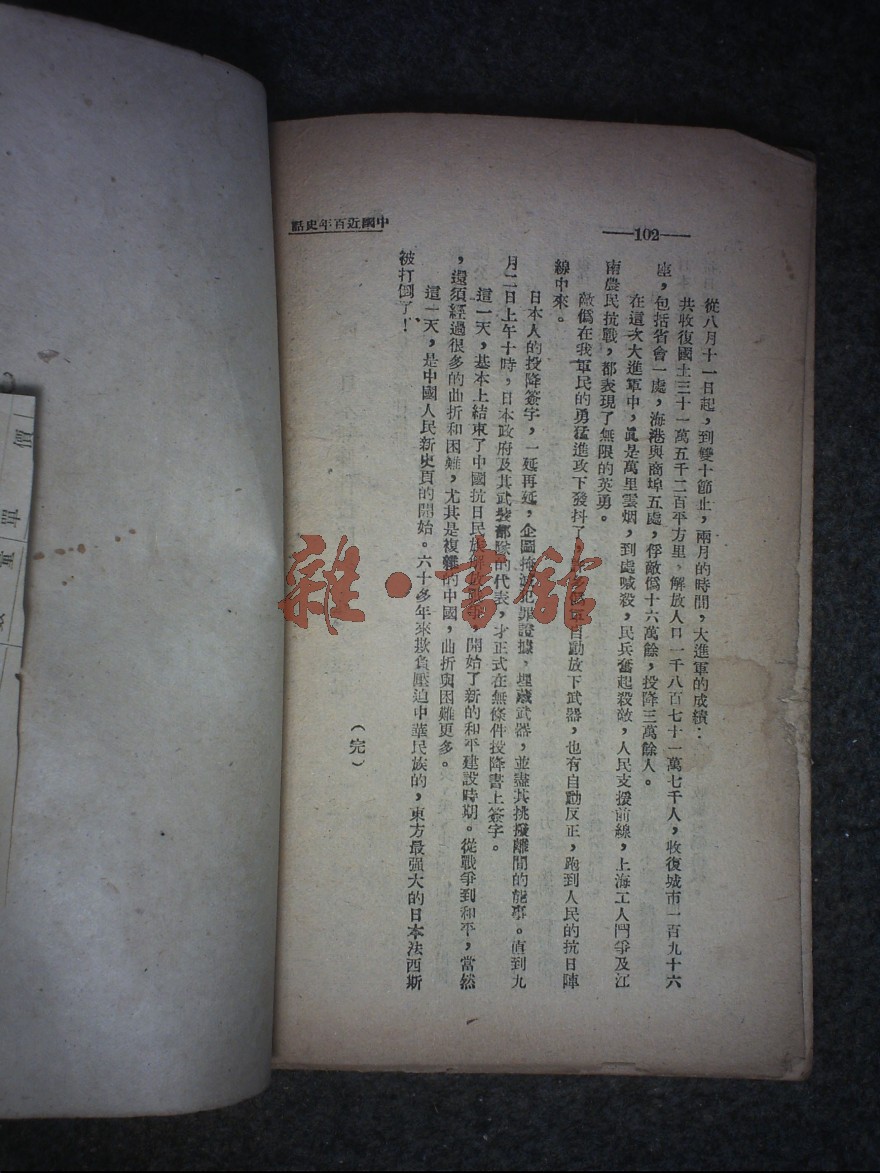 —102—
中國近百年史話
從八月十一日起，到雙十節止，兩月的時間，大進軍的成績：
共收復國土三十一萬五千二百平方里，解放人口一千八百七十一萬七千人，收復城市一百九十六
座，包括省會一處，海港與商埠五處，俘敵偽十六萬餘，投降三萬餘人。
在這次大進軍中，眞是萬里雲烟，到處喊殺，民兵奮起殺敵，人民支援前線，上海工人鬥爭及江
南農民抗戰，都表現了無限的英勇。
敵僞在我軍民的勇猛進攻下發抖了，僞軍自動放下武器，也有自動反正，跑到人民的抗日陣
線中來。
日本人的投降簽字，一延再延，企圖掩滅犯罪證據，埋藏武器，並盡其挑撥離間的能事。直到九
月二日上午十時，日本政府及其武裝部隊的代表，才正式在無條件投降書上簽字。
這一天，基本上結束了中國抗日民族解放戰爭，開始了新的和平建設時期。從戰爭到和平，當然
，還須經過很多的曲折和困難，尤其是複雜的中國，曲折與困難更多。
這一天，是中國人民新史頁的開始。六十多年來欺負壓迫中華民族的，東方最强大的日本法西斯
被打倒了！
（完）
雜·書館